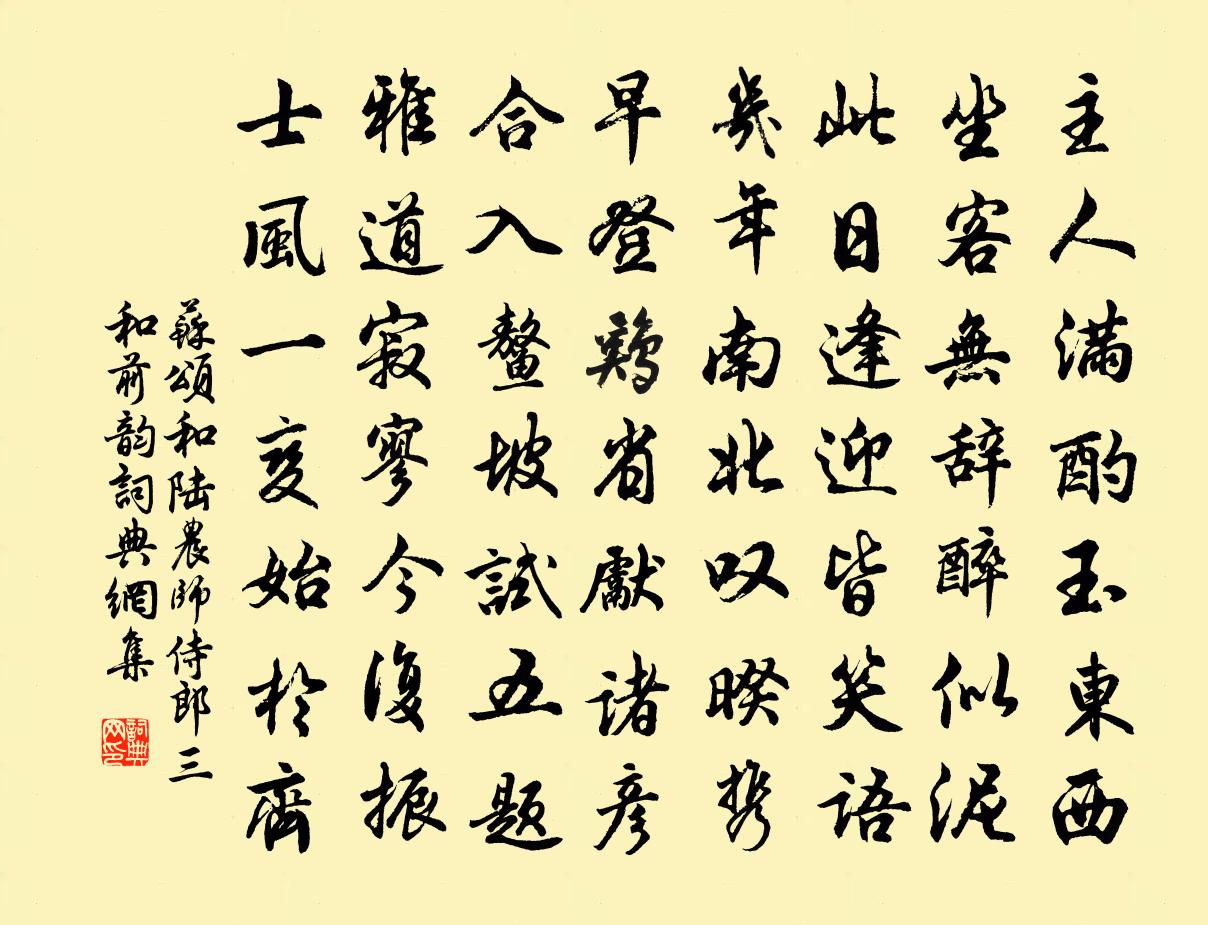 主人滿酌玉東西
坐客無辭醉似泥
此日逢迎皆笑語
幾年南北叹暌携
早登鷄省獻諸彦
合入鳌坡試五题
雅道寂寥今復振
士風一变始於齊
蘇頌和陆農师侍郎三
和前韵詞典網集
詞典
网印